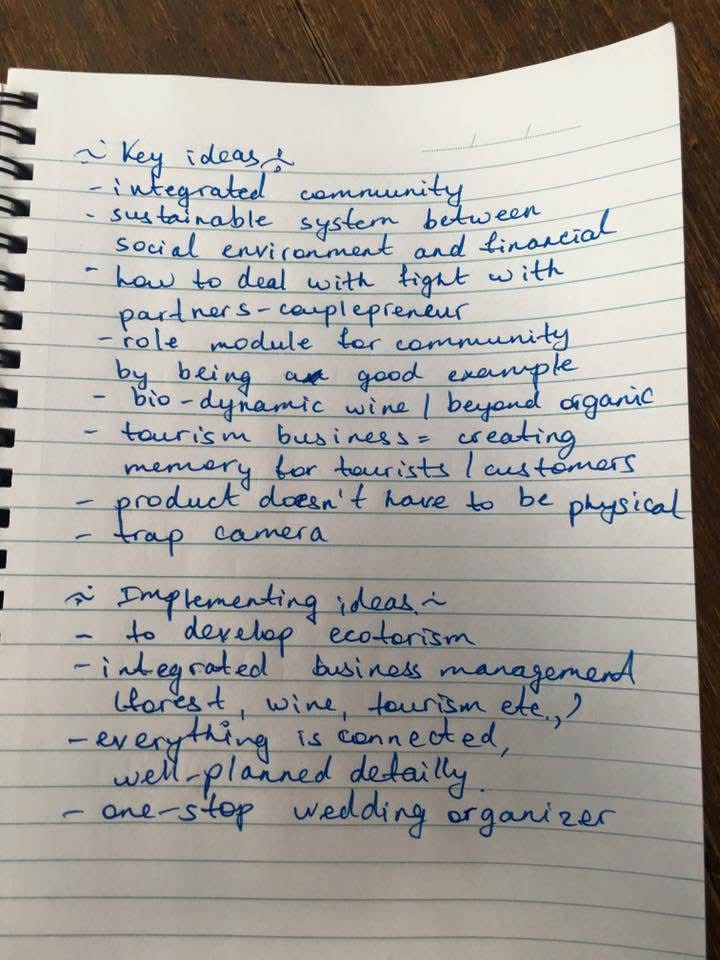 ~ Key ideas ~
- integrated community
- sustainable system between
social environment and financial
- how to deal with fight with
partners - couplepreneur
- role module for community
by being a good example
- bio-dynamic wine / beyond organic
- tourism business = creating
memory for tourists / customers
- product doesn't have to be physical
- trap camera
~ Implementing ideas ~
- to develop ecotorism
- integrated business management
(forest, wine, tourism etc.,)
- everything is connected,
well-planned detailly.
- one-stop wedding organizer